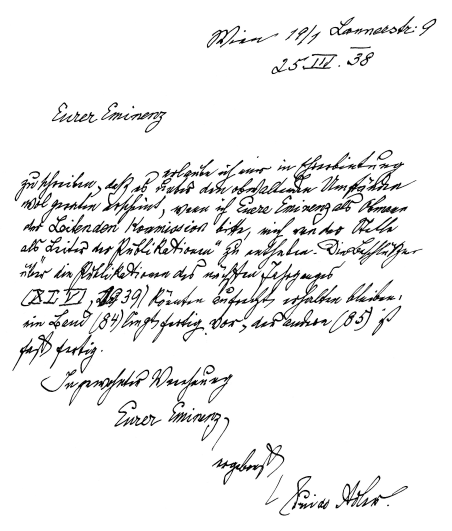 Wien 19/1 Lannerstr: 9
25 III. 38
Eurer Eminenz
erlaube ich mir in Ehrerbietung
zu schreiben, daß es unter den obwaltenden Umständen
wol geraten erscheint, wenn ich Eure Eminenz als Obmann
der Leitenden Kommission bitte, mich von der Stelle
als Leiter der Publikationen" zu entheben. Die Beschlüsse
über die Publikationen des nächsten Jahrganges
(XLVI, 1939) könnten aufrecht erhalten bleiben:
ein Band (84) liegt fertig vor, der andere (85) ist
fast fertig.
In gewohnter Verehrung
Eurer Eminenz
ergebenst
Guido Adler.